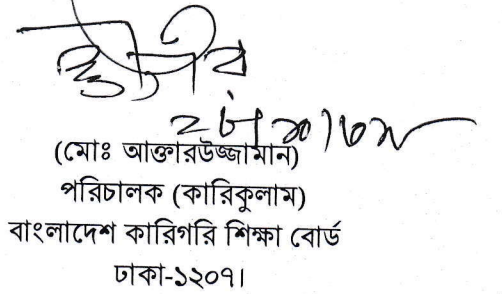 (মোঃ আক্তারউজ্জামান)
পরিচালক (কারিকুলাম)
বাংলাদেশ কারিগরি শিক্ষা বোর্ড
ঢাকা-১২০৭।